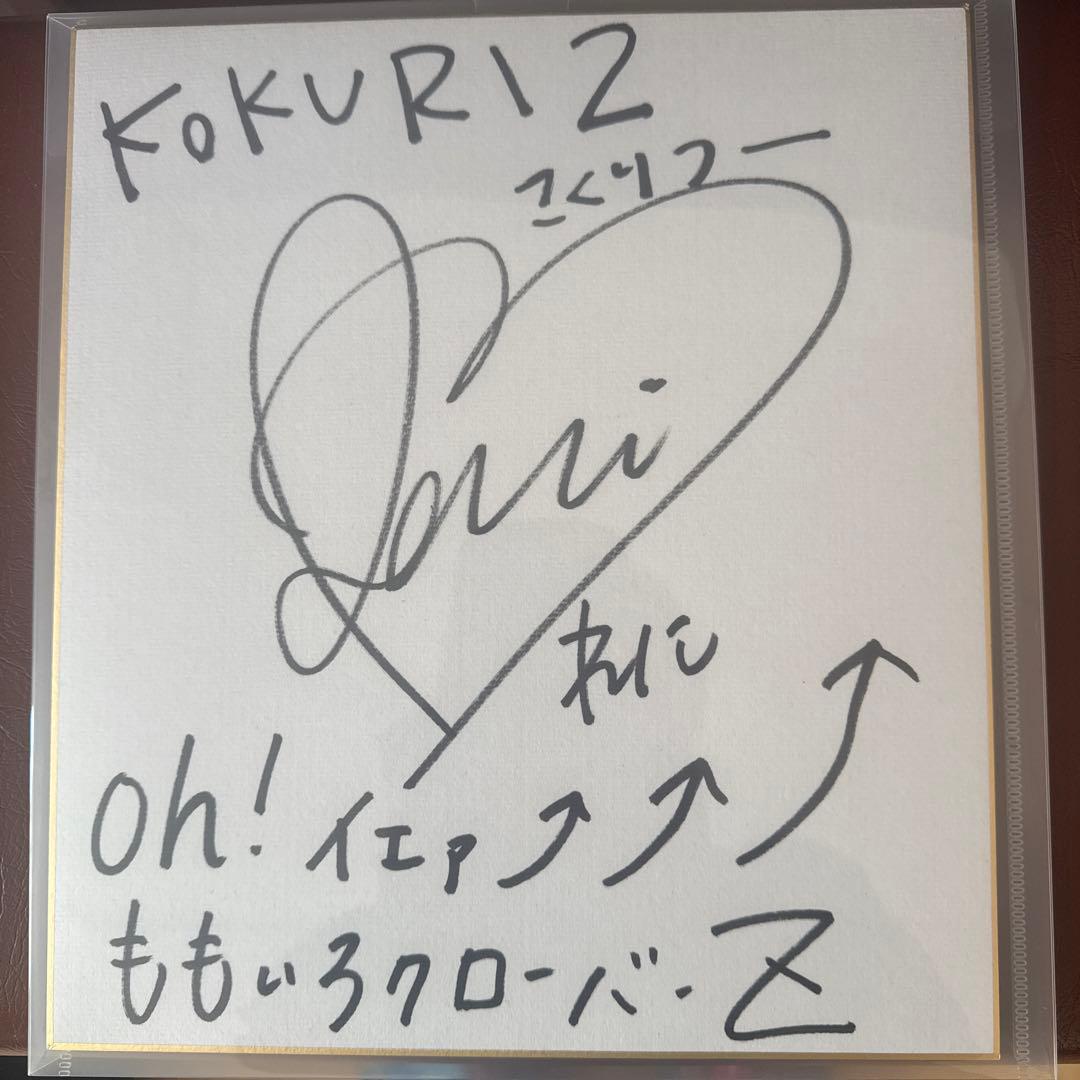 KOKURIZ
こくりつー
Reni
れに
oh! イエァ↗↗↗
ももいろクローバーZ